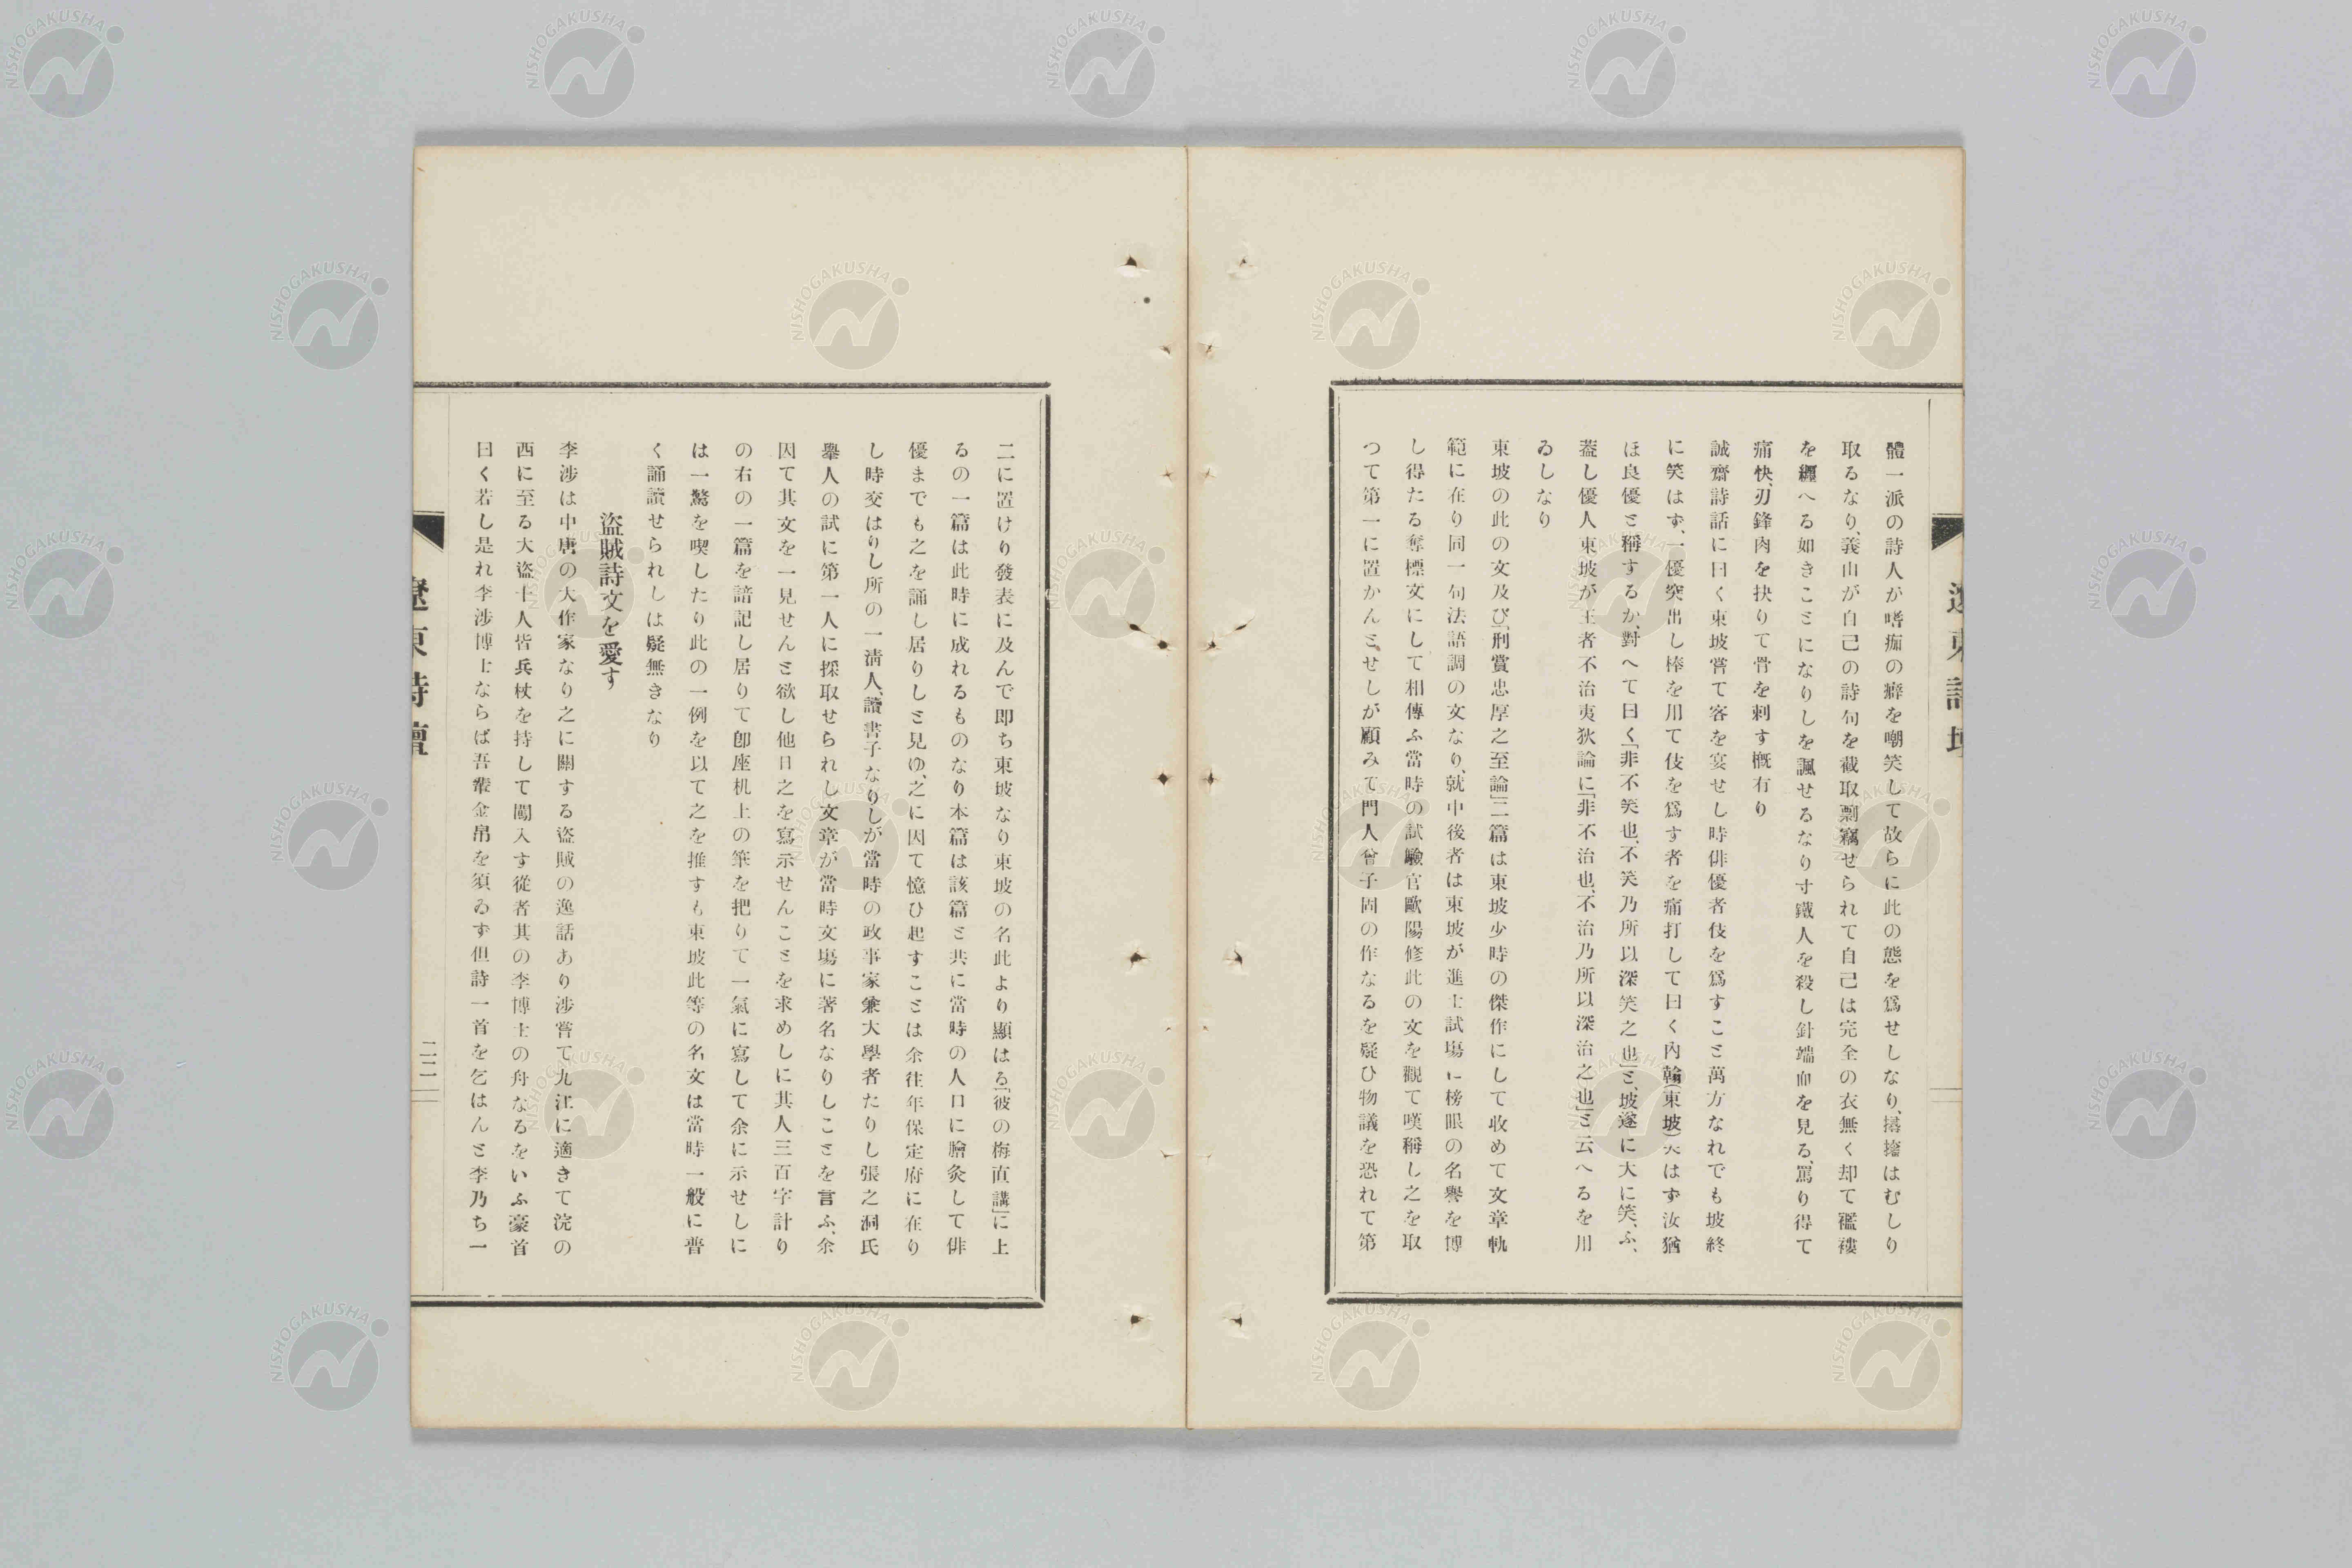 體一派の詩人が嗜痂の癖を嘲笑して故らに此の態を爲せしなり、撏撦はむしり
取るなり、義山が自己の詩句を截取剽竊せられて自己は完全の衣無く却て襤褸
を纒へる如きことになりしを諷せるなり寸鐵人を殺し針端血を見る、罵り得て
痛快、刃鋒肉を抉りて骨を刺す概有り
誠齋詩話に曰く東坡嘗て客を宴せし時俳優者伎を爲すこと萬方なれでも坡終
に笑はず、一優突出し棒を用て伎を爲す者を痛打して曰く內翰(東坡)笑はず汝猶
ほ良優と稱するか、對へて曰く「非不笑也、不笑乃所以深笑之也」と、坡遂に大に笑ふ、
蓋し優人東坡が王者不治夷狄論に「非不治也、不治乃所以深治之也」と云へるを用
ゐしなり
東坡の此の文及び「刑賞忠厚之至論」二篇は東坡少時の傑作にして收めて文章軌
範に在り同一句法語調の文なり、就中後者は東坡が進士試場に榜眼の名譽を博
し得たる奪標文にして相傳ふ當時の試驗官歐陽修此の文を觀て嘆稱し之を取
つて第一に置かんとせしが顧みて門人曾子固の作なるを疑ひ物議を恐れて第
遼東詩壇
二に置けり發表に及んで即ち東坡なり東坡の名此より顯はる「彼の梅直講」に上
るの一篇は此時に成れるものなり本篇は該篇と共に當時の人口に膾灸して俳
優までも之を誦し居りしと見ゆ、之に因て憶ひ起すことは余往年保定府に在り
し時交はりし所の一淸人、讀書子なりしが當時の政事家兼大學者たりし張之洞氏
擧人の試に第一人に採取せられし文章が當時文塲に著名なりしことを言ふ、余
因て其文を一見せんと欲し他日之を寫示せんことを求めしに其人三百字計り
の右の一篇を諳記し居りて卽座机上の筆を把りて一氣に寫して余に示せしに
は一驚を喫したり此の一例を以て之を推すも東坡此等の名文は當時一般に普
く誦讀せられしは疑無きなり
盜賊詩文を愛す
李涉は中唐の大作家なり之に關する盜賊の逸話あり涉嘗て九江に適きて浣の
西に至る大盜十人皆兵杖を持して闖入す從者其の李博士の舟なるをいふ豪首
曰く若し是れ李涉博士ならば吾輩金帛を須ゐず但詩一首を乞はんと李乃ち一
遼東詩壇
二二